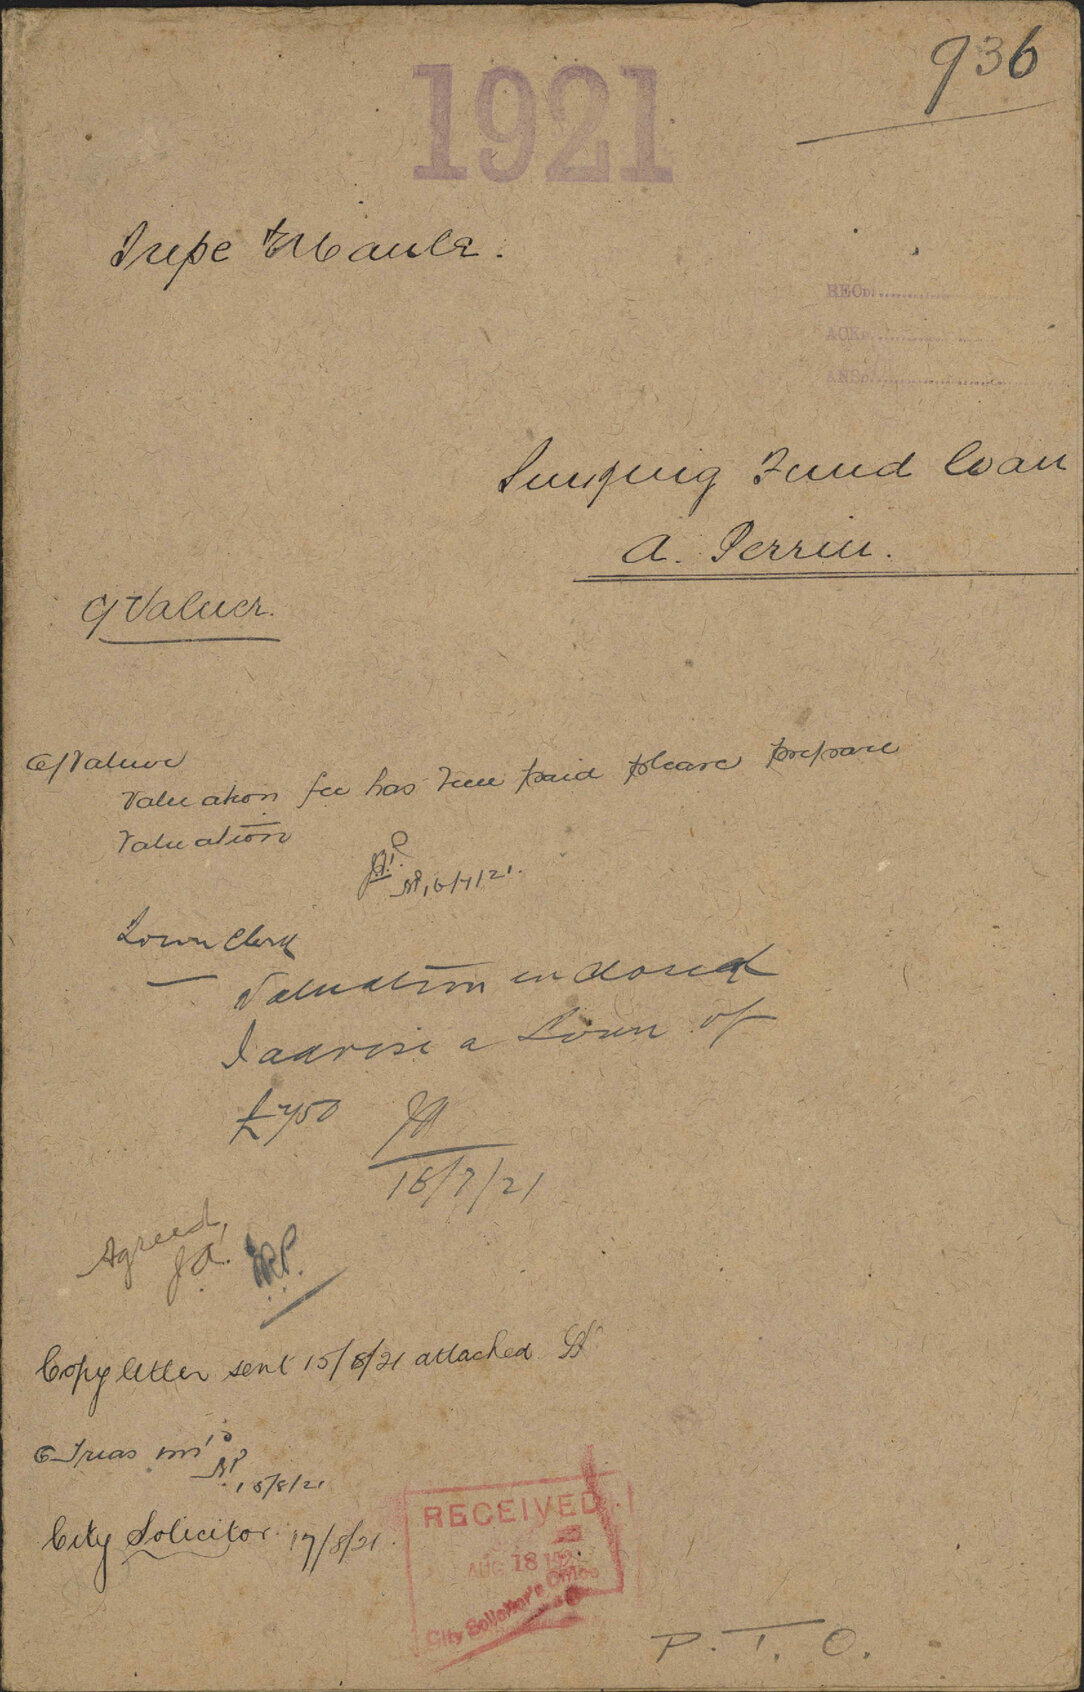 936
1921
Tripe & Maule.
RECD.
ACKD.
ANSD.
Sinking Fund Loan
A. Perrin.
C/Valuer.
C/Valuer
Valuation fee has been paid please prepare
Valuation
16/7/21.
Town Clerk
Valuation enclosed
I advise a Loan of
£750
18/7/21
Agreed,
J.A.
Copy letter sent 15/8/21 attached
C Treas
15/8/21
City Solicitor 17/8/21.
RECEIVED
AUG 18 192
City Solicitor's Office
P.T.O.